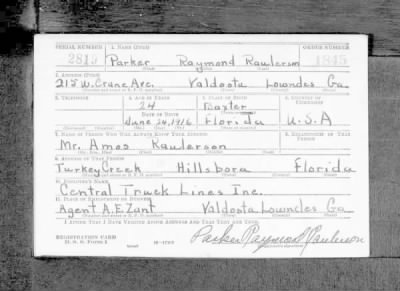 SERIAL NUMBER 1. NAME (Print) ORDER NUMBER
2815 Parker Raymond Raulerson 1845
2. ADDRESS (Print)
215 W. Crane Ave. Valdosta Lowndes Ga
3. TELEPHONE 4. AGE IN YEARS 5. PLACE OF BIRTH 6. COUNTRY OF CITIZENSHIP
24 Baxter
DATE OF BIRTH
June 24, 1916 Florida U.S.A
7. NAME OF PERSON WHO WILL ALWAYS KNOW YOUR ADDRESS 8. RELATIONSHIP OF THAT PERSON
Mr. Amos Raulerson
9. ADDRESS OF THAT PERSON
Turkey Creek Hillsboro Florida
10. EMPLOYER'S NAME
Central Truck Lines Inc.
11. PLACE OF EMPLOYMENT OR BUSINESS
Agent A.E. Zant Valdosta Lowndes Ga
I AFFIRM THAT I HAVE VERIFIED ABOVE ANSWERS AND THAT THEY ARE TRUE.
REGISTRATION CARD
D. S. S. Form 1 Parker Raymond Raulerson